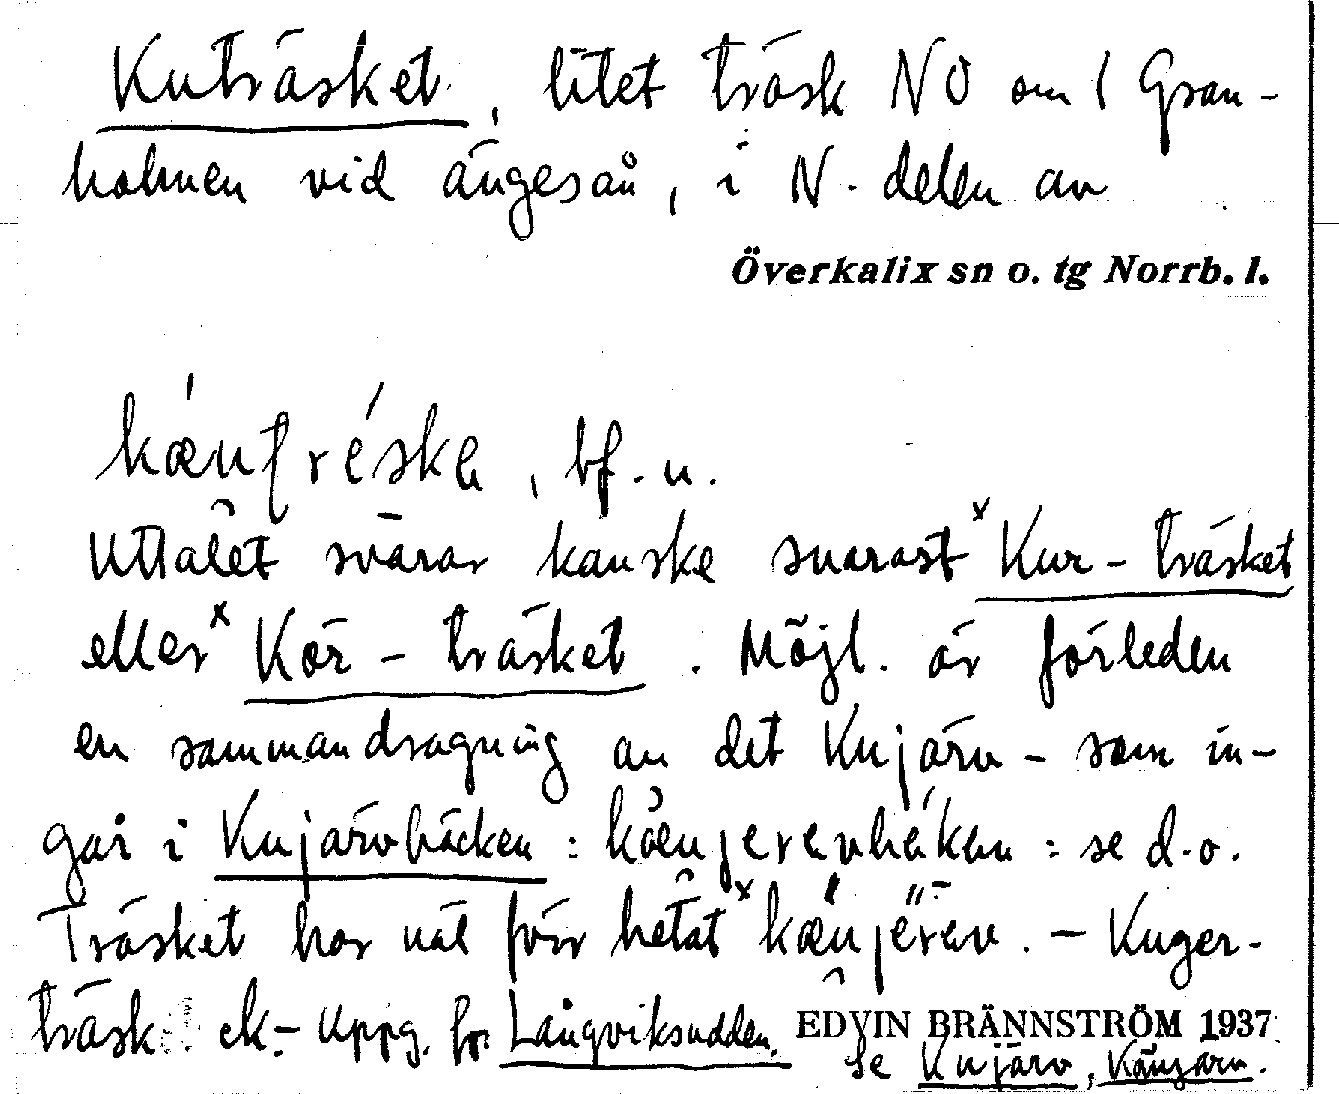 Kuträsket, litet träsk NO om ( Gran-
holmen vid ängesån, i N. delen av
Överkalix sn o. tg Norrb. l.
bf. n.
Uttalet svarar kanske snarast ˣKur-träsket
eller ˣKör-träsket. Möjl. är förleden
en sammandragning av det Kujärv- som in-
går i Kujärvbäcken : : se d.o.
Träsket har väl förr hetat . – Kuger-
träsk ek.- uppg. fr. Långviksudden.
EDVIN BRÄNNSTRÖM 1937
se Kujärv,